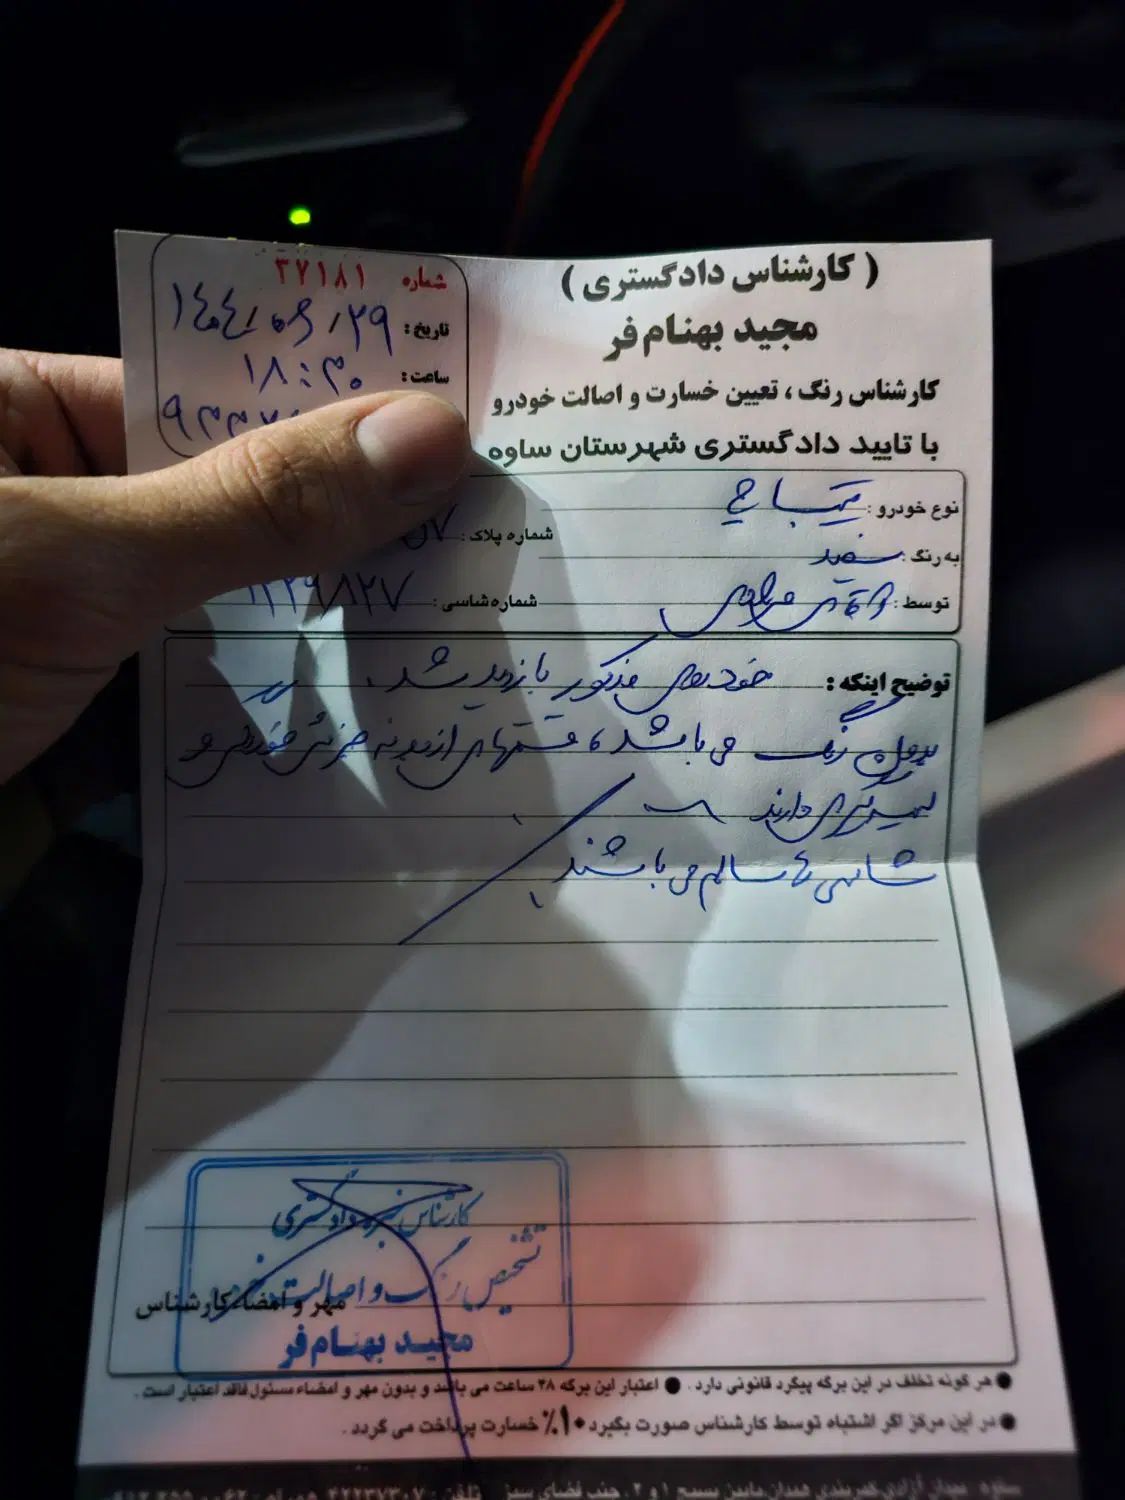 ( کارشناس دادگستری )
مجید بهنام فر
کارشناس رنگ ، تعیین خسارت و اصالت خودرو
با تایید دادگستری شهرستان ساوه
شماره ۳۷۱۸۱
تاریخ : ۱۴۰۴/۰۶/۲۹
ساعت : ۱۸:۳۰
نوع خودرو : تیبا
به رنگ : سفید
شماره پلاک :
توسط : آقای
شماره شاسی : ۱۲۲۹۸۲۷
توضیح اینکه : خودروی مذکور بازدید شد .
بدون رنگ می باشد ، قسمتهای از بدنه
لیسه گیری دارند
شاسی ها سالم می باشند
کارشناس خبره دادگستری
تشخیص رنگ و اصالت خودرو
مجید بهنام فر
مهر و امضاء کارشناس
● هر گونه تخلف در این برگه پیگرد قانونی دارد . ● اعتبار این برگه ۴۸ ساعت می باشد و بدون مهر و امضاء مسئول فاقد اعتبار است .
● در این مرکز اگر اشتباه توسط کارشناس صورت بگیرد ۱۰٪ خسارت پرداخت می گردد .
ساوه میدان آزادی کمربندی همدان مابین بسیج ۱ و ۲ ، جنب فضای سبز تلفن : ۴۲۲۳۷۳۰۷